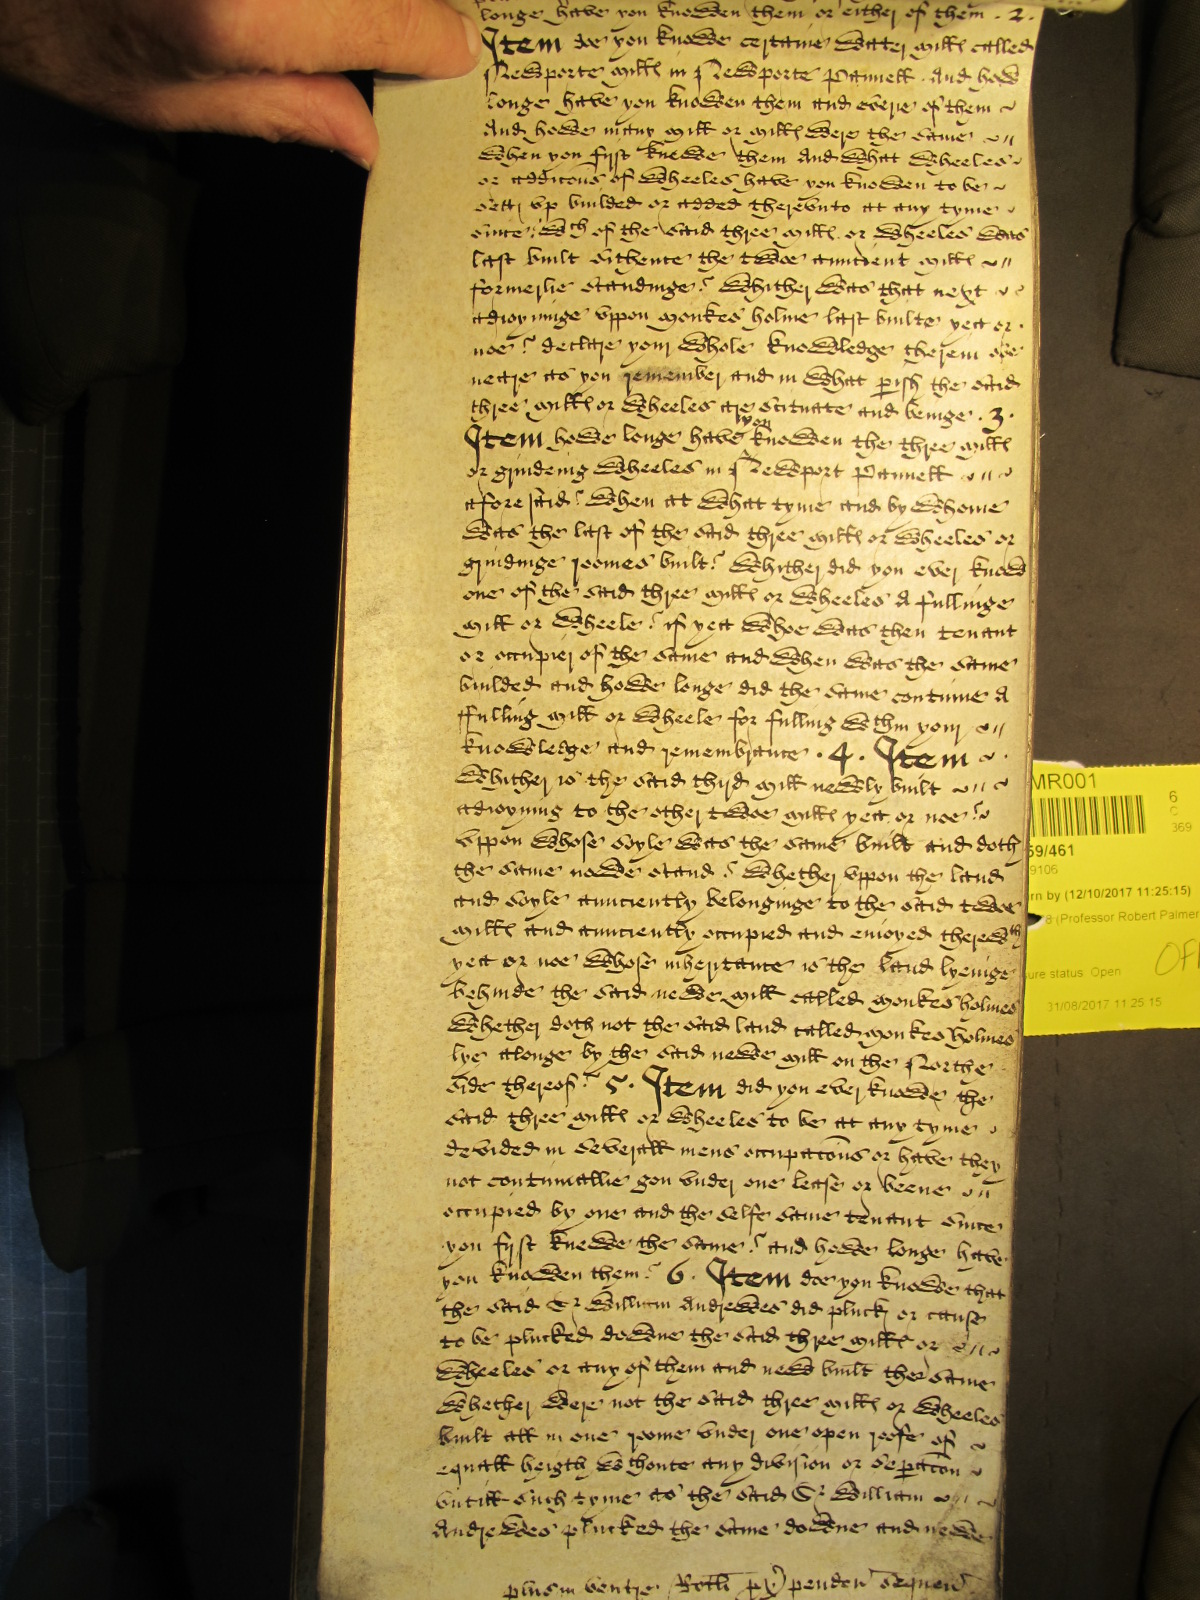 longe have you knowen them or either of them . 2 .
Item doe you knowe certaine water mills called
Newporte mills in Newporte Pannell . And how
longe have you knowen them and everie of them
And howe many mill or mills were the same
when you first knewe them And what wheeles
or addicons of wheeles have you knowen to be
sett vp builded or added therevnto at any tyme
since? wch of the said three mills or wheeles was
last built sithence the twoe auncient mills
formerlie standinge? Whither was that next
adioyninge vppon Monkes holme last builte yea or
noe? declare your whole knowledge therein soe
neare as you remember and in what pish the said
three mills or wheeles are scituate and beinge . 3 .
Item howe longe have you knowen the three mills
or grindeing wheeles in Newport Pannell
aforesaid? When at what tyme and by whome
was the last of the said three mills or wheeles or
grindinge roomes built? Whither did you ever know
one of the said three mills or wheeles A fullinge
mill or wheele? if yea whoe was then tenant
or occupier of the same and when was the same
builded and howe longe did the same continue A
ffulling mill or wheele for fulling wthin your
knowledge and remembrance . 4 . Item
Whither is the said third mill newly built
adioyning to the other twoe mills yea or noe?
vppon whose soyle was the same built and doth
the same nowe stand? Whether vppon the land
and soyle aunciently belonginge to the said twoe
mills and aunciently occupied and enioyed therewth
yea or noe whose inheritance is the land lyeinge
behinde the said newe mill called Monkes holmes
Whether doth not the said land called Monkes holmes
lye alonge by the said newe mill on the Northe
side thereof? 5 . Item did you ever knowe the
said three mills or wheeles to be at any tyme
devided in severall mens occupacons or have they
not continuallie gon vnder one lease or beene
occupied by one and the selfe same tenant since
you first knewe the same? and howe longe have
you knowen them? 6 . Item doe you knowe that
the said Sr William Andrewes did pluck or cause
to be plucked downe the said three mills or
wheeles or any of them and new built the same
Whether were not the said three mills or wheeles
built all in one roome vnder one open roofe of
equall heigth wthoute any division or sepacon
vntill such tyme as the said Sr William
Andrewes plucked the same downe and newe
MR001
6
C
369
59/461
9106
rn by (12/10/2017 11:25:15)
8 (Professor Robert Palmer
ure status Open
31/08/2017 11 25 15